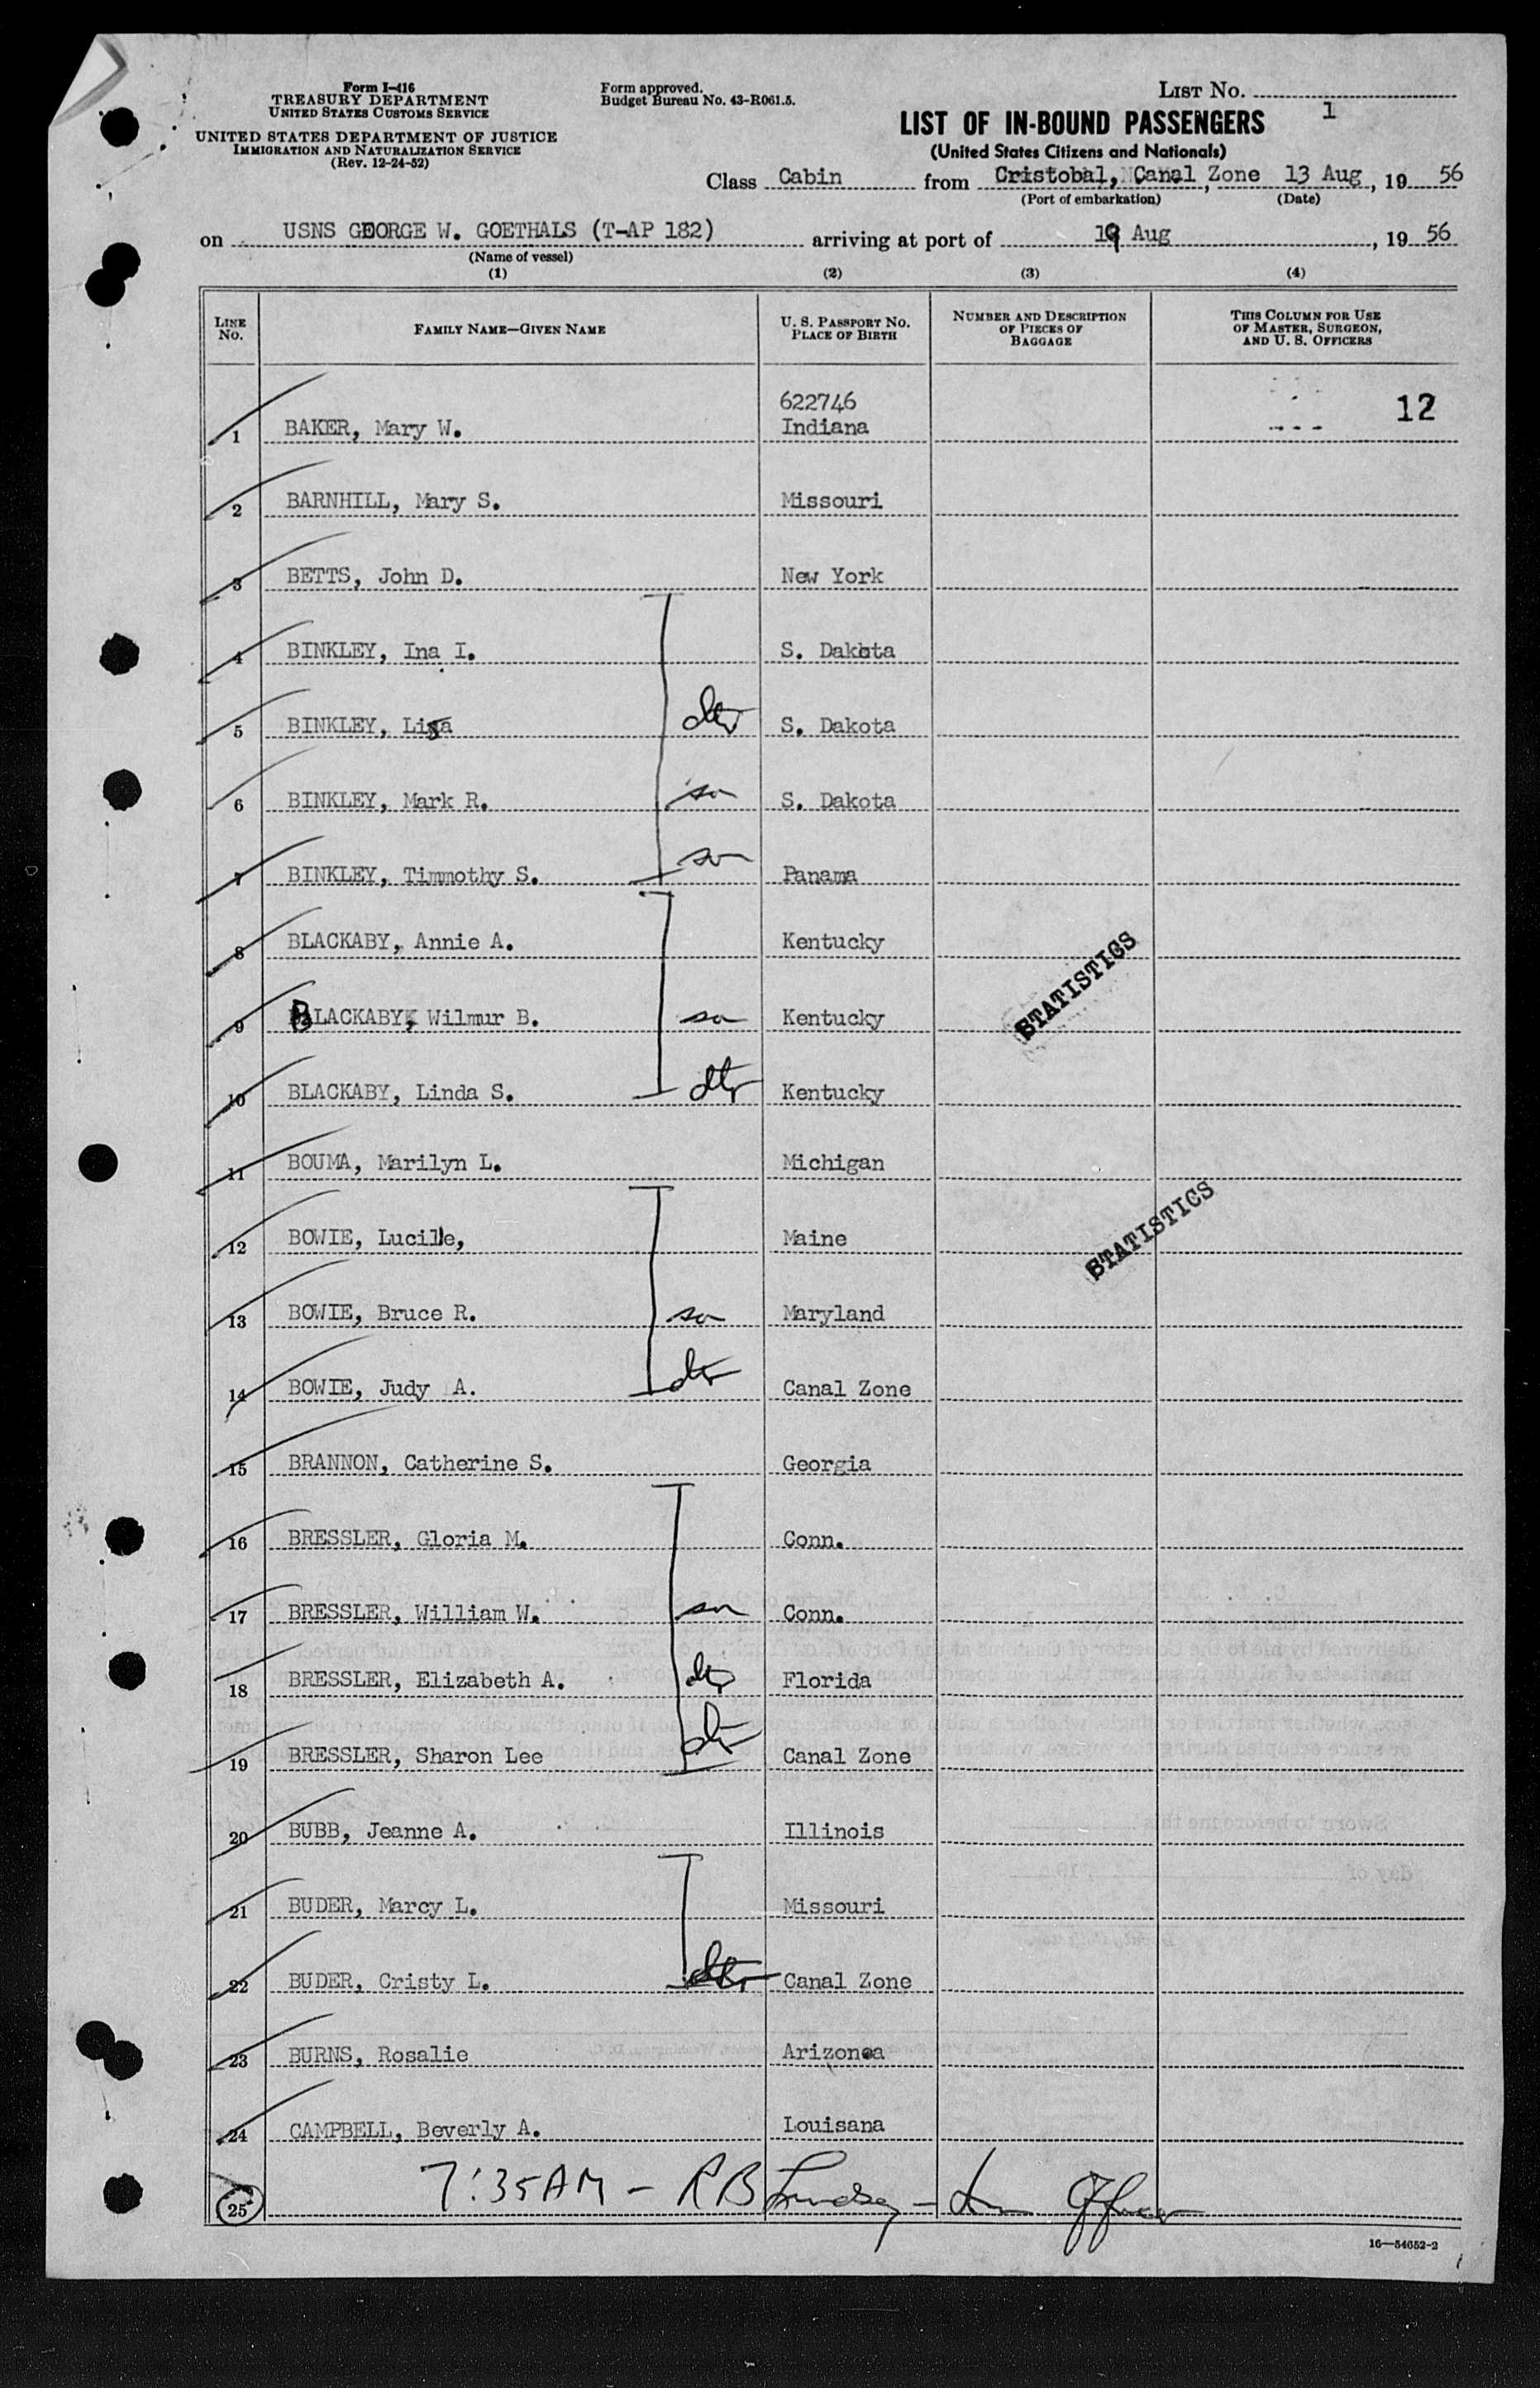 Form I-416
TREASURY DEPARTMENT
UNITED STATES CUSTOMS SERVICE
UNITED STATES DEPARTMENT OF JUSTICE
IMMIGRATION AND NATURALIZATION SERVICE
(Rev. 12-24-52)
Form approved.
Budget Bureau No. 43-R061.5.
LIST NO.
1
LIST OF IN-BOUND PASSENGERS
(United States Citizens and Nationals)
Class Cabin from Cristobal, Canal Zone 13 Aug, 19 56
(Port of embarkation) (Date)
on USNS GEORGE W. GOETHALS (T-AP 182) arriving at port of 19 Aug, 19 56
(Name of vessel)
(1) (2) (3) (4)
LINE NO. FAMILY NAME—GIVEN NAME U. S. PASSPORT NO. PLACE OF BIRTH NUMBER AND DESCRIPTION OF PIECES OF BAGGAGE THIS COLUMN FOR USE OF MASTER, SURGEON, AND U. S. OFFICERS
622746 12
1 BAKER, Mary W. Indiana
2 BARNHILL, Mary S. Missouri
3 BETTS, John D. New York
4 BINKLEY, Ina I. S. Dakota
5 BINKLEY, Lisa dtr S. Dakota
6 BINKLEY, Mark R. son S. Dakota
7 BINKLEY, Timmothy S. son Panama
8 BLACKABY, Annie A. Kentucky
STATISTICS
9 BLACKABY, Wilmur B. son Kentucky
10 BLACKABY, Linda S. dtr Kentucky
11 BOUMA, Marilyn L. Michigan
STATISTICS
12 BOWIE, Lucille, Maine
13 BOWIE, Bruce R. son Maryland
14 BOWIE, Judy A. dtr Canal Zone
15 BRANNON, Catherine S. Georgia
16 BRESSLER, Gloria M. Conn.
17 BRESSLER, William W. son Conn.
18 BRESSLER, Elizabeth A. dtr Florida
19 BRESSLER, Sharon Lee dtr Canal Zone
20 BUBB, Jeanne A. Illinois
21 BUDER, Marcy L. Missouri
22 BUDER, Cristy L. dtr Canal Zone
23 BURNS, Rosalie Arizona
24 CAMPBELL, Beverly A. Louisana
25 7:35AM - RB Lindsey - Officer
16—54652-2